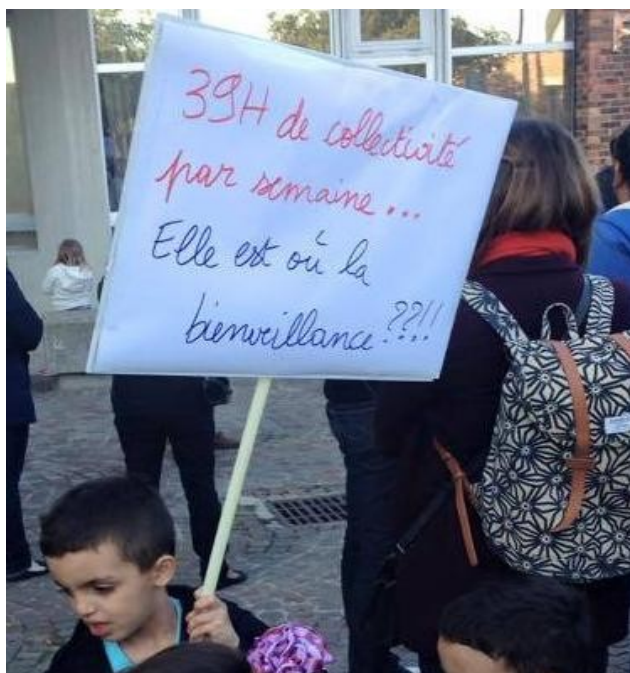 39H de collectivité
par semaine...
Elle est où la
bienveillance ??!!